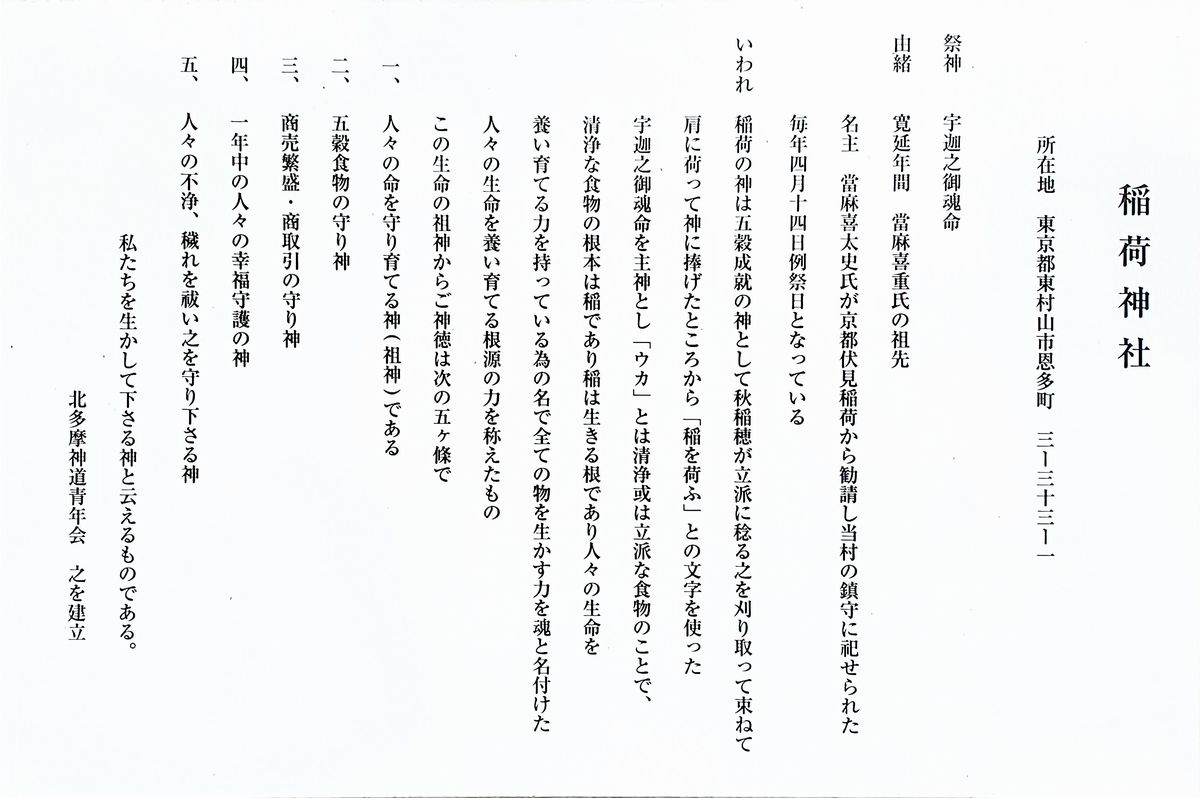 稲荷神社
所在地　東京都東村山市恩多町　三ー三十三ー一
祭神　宇迦之御魂命
由緒　寛延年間　當麻喜重氏の祖先
名主　當麻喜太史氏が京都伏見稲荷から勧請し当村の鎮守に祀せられた
毎年四月十四日例祭日となっている
いわれ　稲荷の神は五穀成就の神として秋稲穂が立派に稔る之を刈り取って束ねて
肩に荷って神に捧げたところから「稲を荷ふ」との文字を使った
宇迦之御魂命を主神とし「ウカ」とは清浄或は立派な食物のことで、
清浄な食物の根本は稲であり稲は生きる根であり人々の生命を
養い育てる力を持っている為の名で全ての物を生かす力を魂と名付けた
人々の生命を養い育てる根源の力を称えたもの
この生命の祖神からご神徳は次の五ヶ條で
一、人々の命を守り育てる神（祖神）である
二、五穀食物の守り神
三、商売繁盛・商取引の守り神
四、一年中の人々の幸福守護の神
五、人々の不浄、穢れを祓い之を守り下さる神
私たちを生かして下さる神と云えるものである。
北多摩神道青年会　之を建立